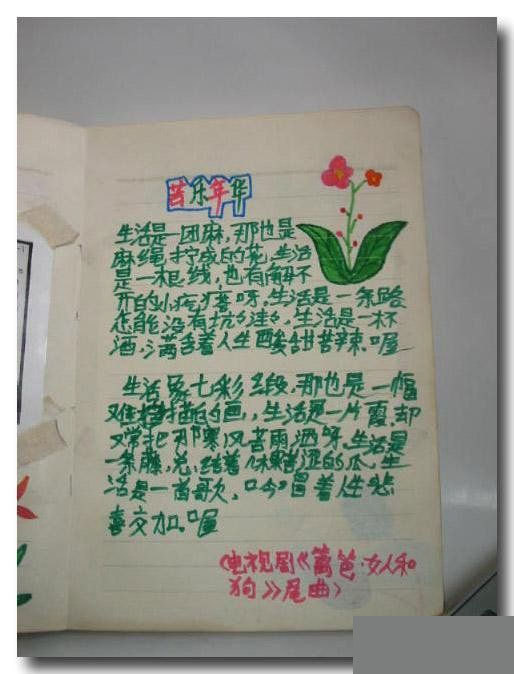 苦乐年华
生活是一团麻，那也是
麻绳拧成的花，生活
是一根线，也有解不
开的小疙瘩呀，生活是一条路
怎能没有坑坑洼洼，生活是一杯
酒，满含着人生酸甜苦辣，喔
生活像七彩缎，那也是一幅
难描的画，生活是一片霞，却
又常把那寒风苦雨洒呀，生活是
一条藤，总结着几颗苦涩的瓜，生
活是一首歌，吟唱着人生悲
喜交加，喔
〈电视剧《篱笆·女人和
狗》尾曲〉